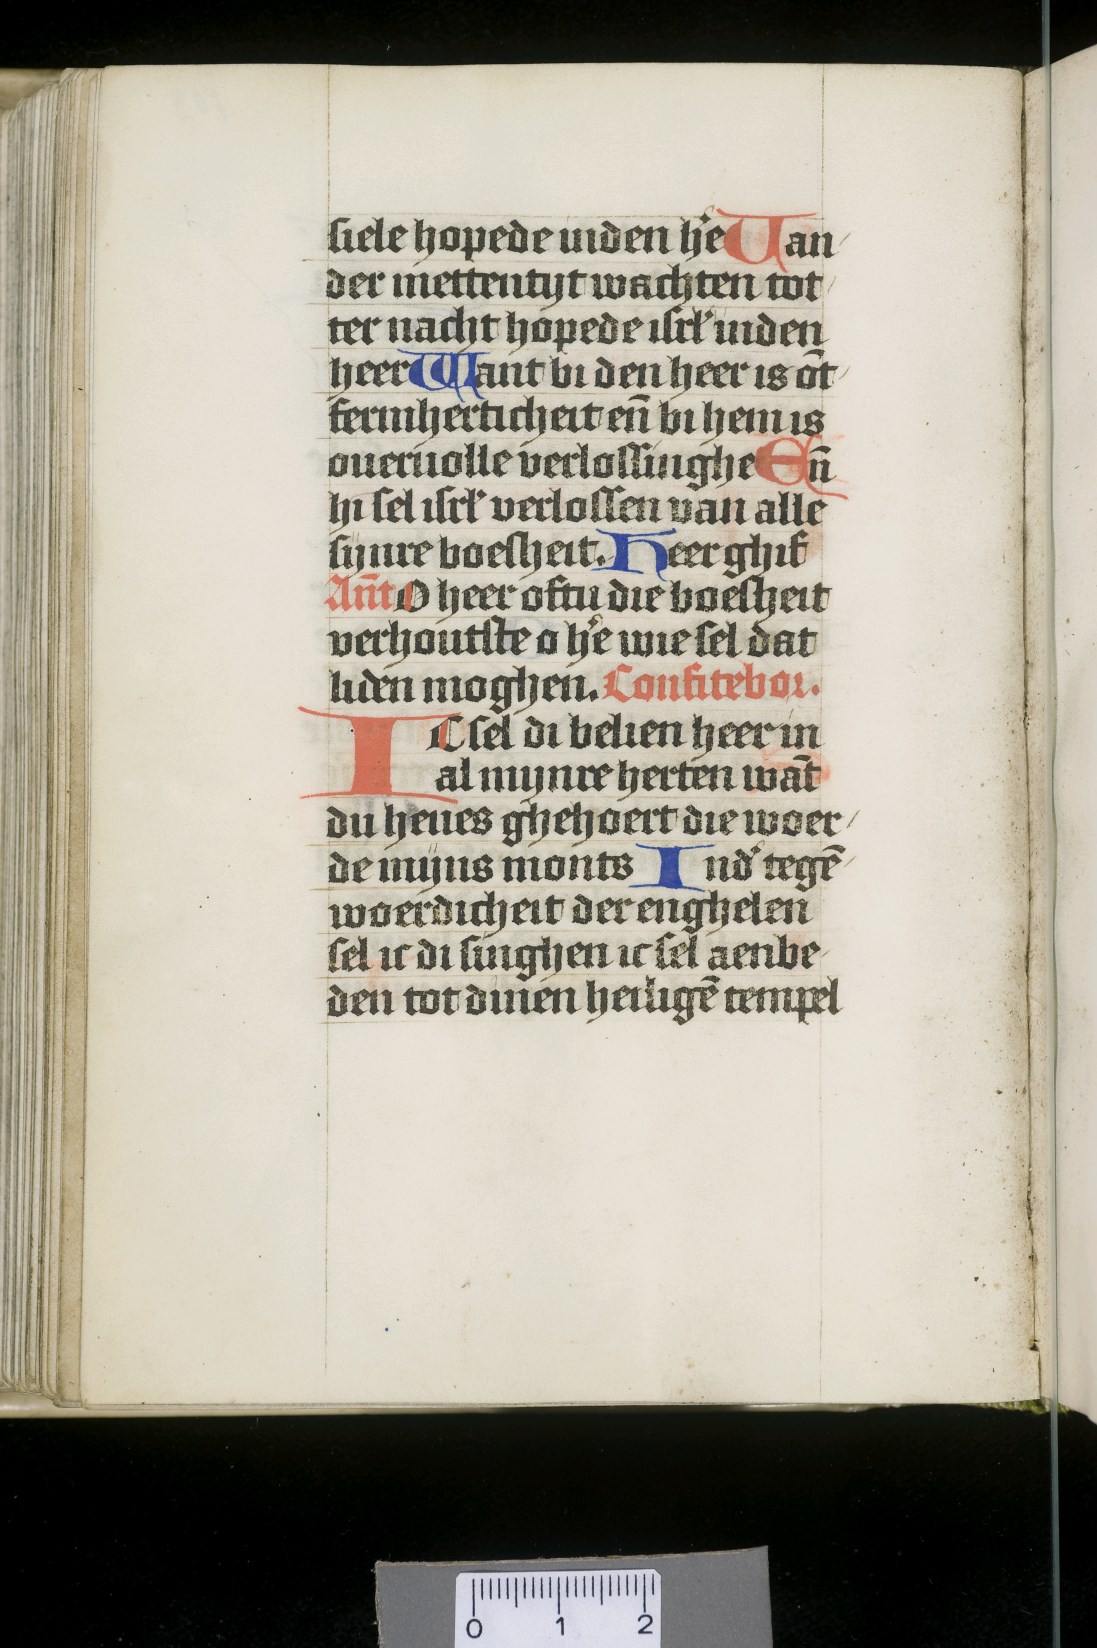 siele hopede inden h'e Van
der mettentijt wachten tot
ter nacht hopede isrl' inden
heer Want bi den heer is ōt
fermherticheit eñ bi hem is
ouervolle verlossinghe Eñ
hi sel isrl' verlossen van alle
sijnre boesheit. Heer ghif
Añt O heer ofttu die boesheit
verhoutste o h'e wie sel dat
liden moghen. Confitebor.
IC sel di belien heer in
al mijnre herten wāt
du heues ghehoert die woer
de mijns monts Ind' tegē
woerdicheit der enghelen
sel ic di singhen ic sel aenbe
den tot dinen heiligē tempel
0 1 2